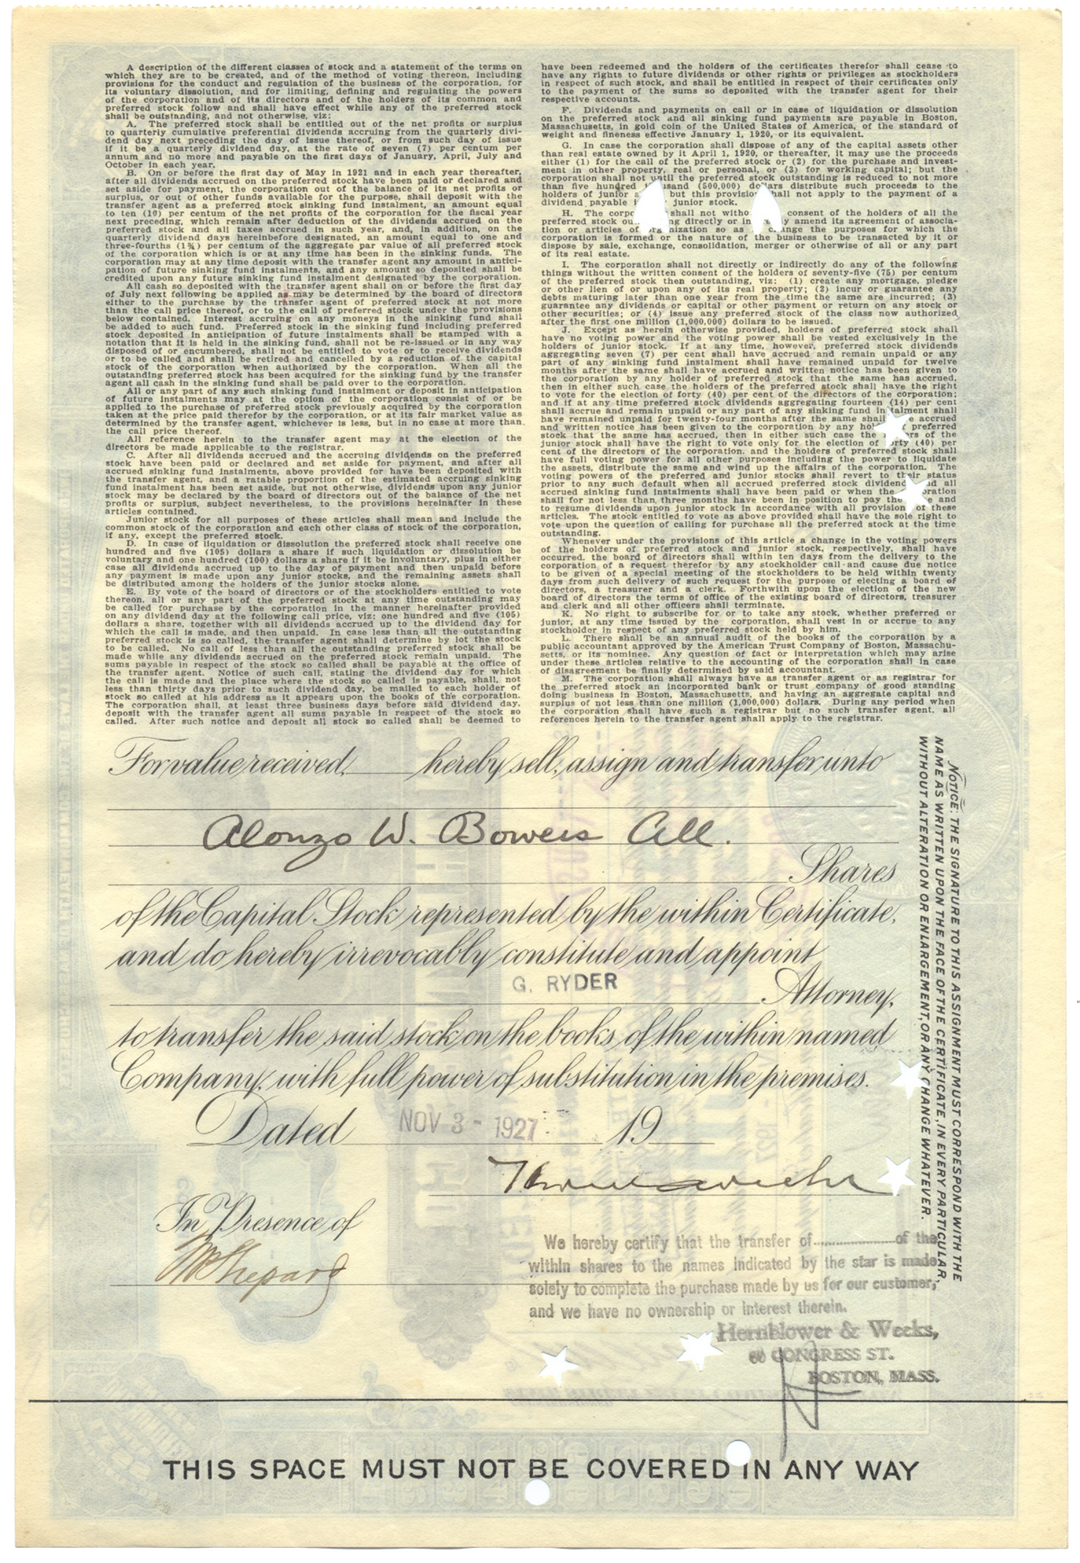 A description of the different classes of stock and a statement of the terms on
which they are to be created, and of the method of voting thereon, including
provisions for the conduct and regulation of the business of the corporation, for
its voluntary dissolution, and for limiting, defining and regulating the powers
of the corporation and of its directors and of the holders of its common and
preferred stock follow and shall have effect while any of the preferred stock
shall be outstanding, and not otherwise, viz:
A. The preferred stock shall be entitled out of the net profits or surplus
to quarterly cumulative preferential dividends accruing from the quarterly divi-
dend day next preceding the day of issue thereof, or from such day of issue
if it be a quarterly dividend day, at the rate of seven (7) per centum per
annum and no more and payable on the first days of January, April, July and
October in each year.
B. On or before the first day of May in 1921 and in each year thereafter,
after all dividends accrued on the preferred stock have been paid or declared and
set aside for payment, the corporation out of the balance of its net profits or
surplus, or out of other funds available for the purpose, shall deposit with the
transfer agent as a preferred stock sinking fund instalment, an amount equal to
ten (10) per centum of the net profits of the corporation for the fiscal year
next preceding, which remain after deduction of the dividends accrued on the
preferred stock and all taxes accrued in such year, and, in addition, on the
quarterly dividend days hereinbefore designated, an amount equal to one and
three-fourths (1¾) per centum of the aggregate par value of all preferred stock
of the corporation which is or at any time has been in the sinking funds. The
corporation may at any time deposit with the transfer agent any amount in antici-
pation of future sinking fund instalments, and any amount so deposited shall be
credited upon any future sinking fund instalment designated by the corporation.
All cash so deposited with the transfer agent shall on or before the first day
of July next following be applied as may be determined by the board of directors
either to the purchase by the transfer agent of preferred stock at not more
than the call price thereof, or to the call of preferred stock under the provisions
below contained. Interest accruing on any moneys in the sinking fund shall
be added to such fund. Preferred stock in the sinking fund including preferred
stock deposited in anticipation of future instalments shall be stamped with a
notation that it is held in the sinking fund, shall not be re-issued or in any way
disposed of or encumbered, shall not be entitled to vote or to receive dividends
or to be called and shall be retired and cancelled by a reduction of the capital
stock of the corporation when authorized by the corporation. When all the
outstanding preferred stock has been acquired for the sinking fund by the transfer
agent all cash in the sinking fund shall be paid over to the corporation.
All or any part of any such sinking fund instalment or deposit in anticipation
of future instalments may at the option of the corporation consist of or be
applied to the purchase of preferred stock previously acquired by the corporation
taken at the price paid therefor by the corporation, or at its fair market value as
determined by the transfer agent, whichever is less, but in no case at more than
the call price thereof.
All reference herein to the transfer agent may at the election of the
directors be made applicable to the registrar.
C. After all dividends accrued and the accruing dividends on the preferred
stock have been paid or declared and set aside for payment, and after all
accrued sinking fund instalments, above provided for have been deposited with
the transfer agent, and a ratable proportion of the estimated accruing sinking
fund instalment has been set aside, but not otherwise, dividends upon any junior
stock may be declared by the board of directors out of the balance of the net
profits or surplus, subject nevertheless, to the provisions hereinafter in these
articles contained.
Junior stock for all purposes of these articles shall mean and include the
common stock of the corporation and each other class of stock of the corporation,
if any, except the preferred stock.
D. In case of liquidation or dissolution the preferred stock shall receive one
hundred and five (105) dollars a share if such liquidation or dissolution be
voluntary and one hundred (100) dollars a share if it be involuntary, plus in either
case all dividends accrued up to the day of payment and then unpaid before
any payment is made upon any junior stocks, and the remaining assets shall
be distributed among the holders of the junior stocks alone.
E. By vote of the board of directors or of the stockholders entitled to vote
thereon, all or any part of the preferred stock at any time outstanding may
be called for purchase by the corporation in the manner hereinafter provided
on any dividend day at the following call price, viz: one hundred and five (105)
dollars a share, together with all dividends accrued up to the dividend day for
which the call is made, and then unpaid. In case less than all the outstanding
preferred stock is so called, the transfer agent shall determine by lot the stock
to be called. No call of less than all the outstanding preferred stock shall be
made while any dividends accrued on the preferred stock remain unpaid. The
sums payable in respect of the stock so called shall be payable at the office of
the transfer agent. Notice of such call, stating the dividend day for which
the call is made and the place where the stock so called is payable, shall, not
less than thirty days prior to such dividend day, be mailed to each holder of
stock so called at his address as it appears upon the books of the corporation.
The corporation shall, at least three business days before said dividend day,
deposit with the transfer agent all sums payable in respect of the stock so
called. After such notice and deposit all stock so called shall be deemed to
have been redeemed and the holders of the certificates therefor shall cease to
have any rights to future dividends or other rights or privileges as stockholders
in respect of such stock, and shall be entitled in respect of their certificates only
to the payment of the sums so deposited with the transfer agent for their
respective accounts.
F. Dividends and payments on call or in case of liquidation or dissolution
on the preferred stock and all sinking fund payments are payable in Boston,
Massachusetts, in gold coin of the United States of America, of the standard of
weight and fineness effective January 1, 1920, or its equivalent.
G. In case the corporation shall dispose of any of the capital assets other
than real estate owned by it April 1, 1920, or thereafter, it may use the proceeds
either (1) for the call of the preferred stock or (2) for the purchase and invest-
ment in other property, real or personal, or (3) for working capital; but the
corporation shall not until the preferred stock outstanding is reduced to not more
than five hundred and (500,000) dollars distribute such proceeds to the
holders of junior but this provision shall not apply to the payment of a
dividend payable junior stock.
H. The corp shall not witho consent of the holders of all the
preferred stock ou ng directly or in y amend its agreement of associa-
tion or articles of nization so as change the purposes for which the
corporation is formed or the nature of the business to be transacted by it or
dispose by sale, exchange, consolidation, merger or otherwise of all or any part
of its real estate.
I. The corporation shall not directly or indirectly do any of the following
things without the written consent of the holders of seventy-five (75) per centum
of the preferred stock then outstanding, viz: (1) create any mortgage, pledge
or other lien of or upon any of its real property; (2) incur or guarantee any
debts maturing later than one year from the time the same are incurred; (3)
guarantee any dividends or capital or other payment or return on any stock or
other securities; or (4) issue any preferred stock of the class now authorized
after the first one million (1,000,000) dollars to be issued.
J. Except as herein otherwise provided, holders of preferred stock shall
have no voting power and the voting power shall be vested exclusively in the
holders of junior stock. If at any time, however, preferred stock dividends
aggregating seven (7) per cent shall have accrued and remain unpaid or any
part of any sinking fund instalment shall have remained unpaid for twelve
months after the same shall have accrued and written notice has been given to
the corporation by any holder of preferred stock that the same has accrued,
then in either such case, the holders of the preferred stock shall have the right
to vote for the election of forty (40) per cent of the directors of the corporation;
and if at any time preferred stock dividends aggregating fourteen (14) per cent
shall accrue and remain unpaid or any part of any sinking fund instalment shall
have remained unpaid for twenty-four months after the same shall accrued
and written notice has been given to the corporation by any ho preferred
stock that the same has accrued, then in either such case the rs of the
junior stock shall have the right to vote only for the election of forty (40) per
cent of the directors of the corporation, and the holders of preferred stock shall
have full voting power for all other purposes including the power to liquidate
the assets, distribute the same and wind up the affairs of the corporation. The
voting powers of the preferred and junior stocks shall revert to the status
prior to any such default when all accrued preferred stock dividend and all
accrued sinking fund instalments have been paid or when the oration
shall for not less than three months have been in position to pay the e and
to resume dividends upon junior stock in accordance with all provision these
articles. The stock entitled to vote as above provided shall have the sole right to
vote upon the question of calling for purchase all the preferred stock at the time
outstanding.
Whenever under the provisions of this article a change in the voting powers
of the holders of preferred stock and junior stock, respectively, shall have
occurred, the board of directors shall within ten days from the delivery to the
corporation of a request therefor by any stockholder call and cause due notice
to be given of a special meeting of the stockholders to be held within twenty
days from such delivery of such request for the purpose of electing a board of
directors, a treasurer and a clerk. Forthwith upon the election of the new
board of directors the terms of office of the existing board of directors, treasurer
and clerk and all other officers shall terminate.
K. No right to subscribe for or to take any stock, whether preferred or
junior, at any time issued by the corporation, shall vest in or accrue to any
stockholder in respect of any preferred stock held by him.
L. There shall be an annual audit of the books of the corporation by a
public accountant approved by the American Trust Company of Boston, Massachu-
setts, or its nominee. Any question of fact or interpretation which may arise
under these articles relative to the accounting of the corporation shall in case
of disagreement be finally determined by said accountant.
M. The corporation shall always have as transfer agent or as registrar for
the preferred stock an incorporated bank or trust company of good standing
doing business in Boston, Massachusetts, and having an aggregate capital and
surplus of not less than one million (1,000,000) dollars. During any period when
the corporation shall have such a registrar but no such transfer agent, all
references herein to the transfer agent shall apply to the registrar.
For value received, hereby sell, assign and transfer unto
Alonzo W. Bowers All.
Shares
of the Capital Stock represented by the within Certificate,
and do hereby irrevocably constitute and appoint
G. RYDER
Attorney,
to transfer the said stock on the books of the within named
Company, with full power of substitution in the premises.
Dated NOV 3 - 1927 19
In Presence of
We hereby certify that the transfer of of the
within shares to the names indicated by the star is made
solely to complete the purchase made by us for our customer,
and we have no ownership or interest therein.
Hornblower & Weeks,
60 CONGRESS ST.
BOSTON, MASS.
NOTICE: THE SIGNATURE TO THIS ASSIGNMENT MUST CORRESPOND WITH THE
NAME AS WRITTEN UPON THE FACE OF THE CERTIFICATE, IN EVERY PARTICULAR,
WITHOUT ALTERATION OR ENLARGEMENT, OR ANY CHANGE WHATEVER.
THIS SPACE MUST NOT BE COVERED IN ANY WAY